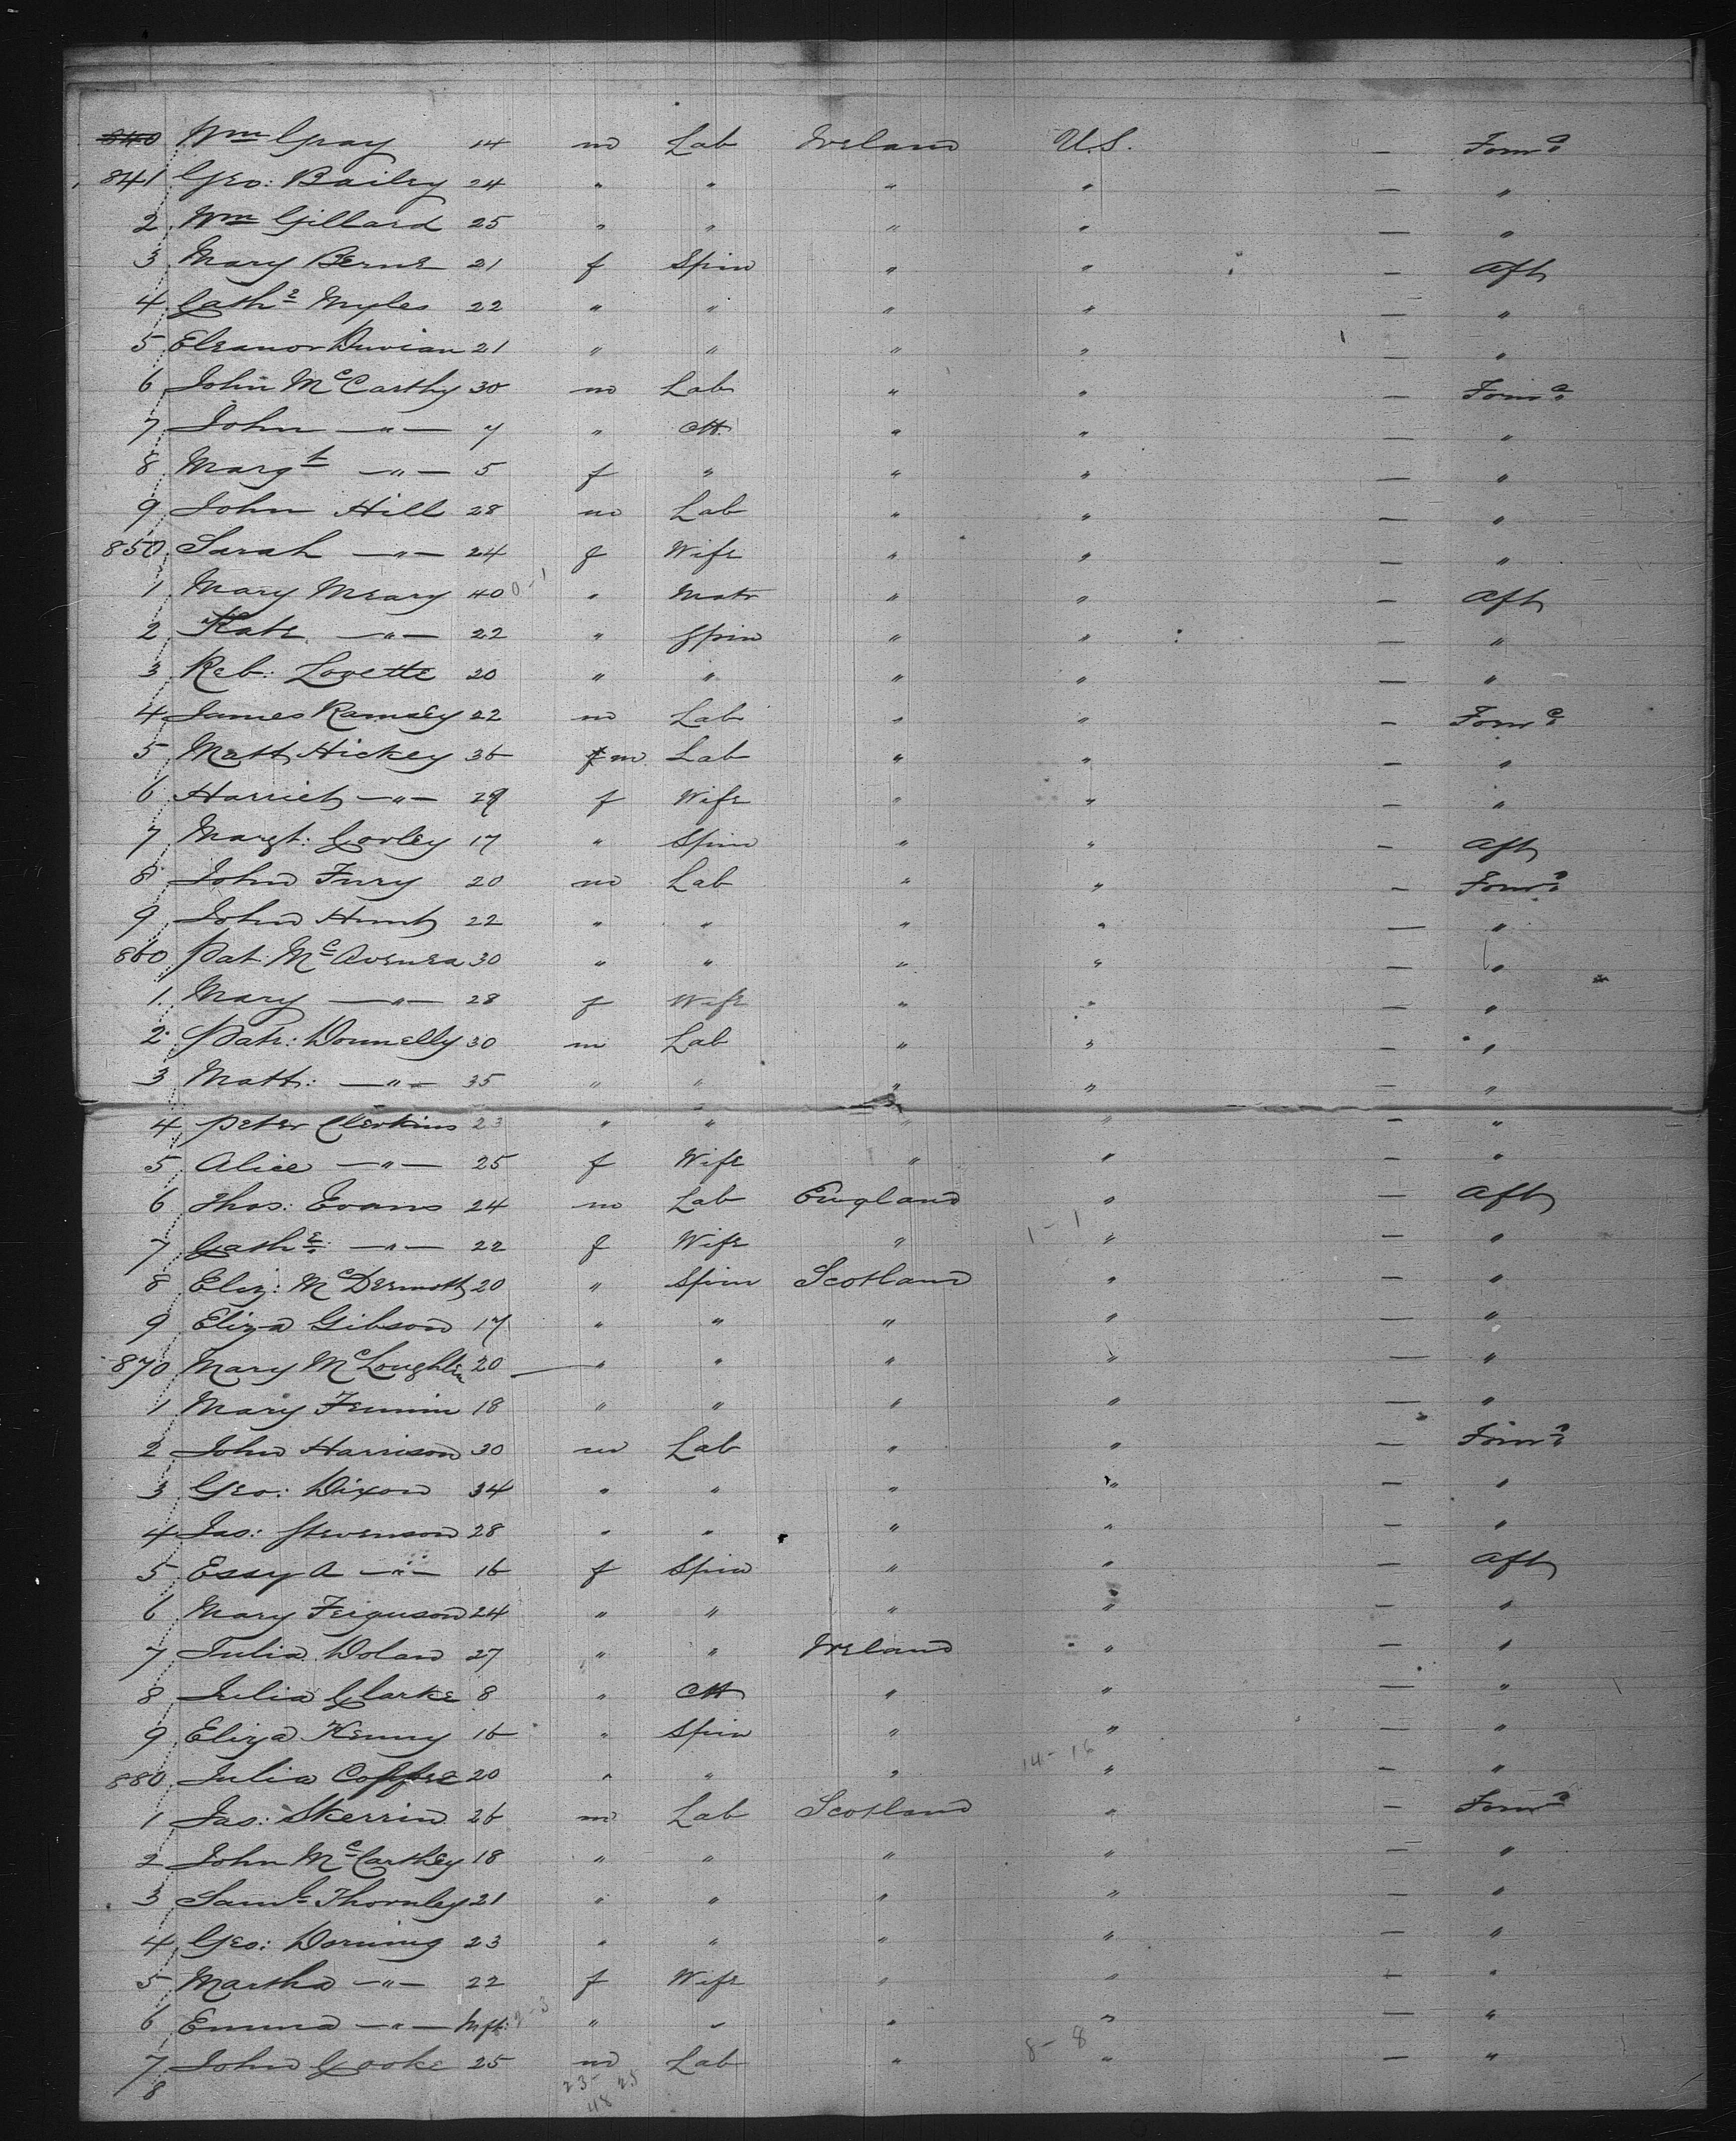 840 Wm Gray 14 m Lab Ireland U.S. — Forwd
841 Geo: Bailey 24 " " " " — "
2 Wm Gillard 25 " " " " — "
3 Mary Berne 21 f Spin " " — Aft
4 Cathe Myles 22 " " " " — "
5 Eleanor 21 " " " " — "
6 John McCarthy 30 m Lab " " — Forwd
7 John —"— 7 " Ch " " — "
8 Margt —"— 5 f " " " — "
9 John Hill 28 m Lab " " — "
850 Sarah —"— 24 f Wife " " — "
1 Mary Meary 40 0-1 " Matr " " — Aft
2 Kate —"— 22 " Spin " " — "
3 Reb: Lovette 20 " " " " — "
4 James Ramsey 22 m Lab " " — Forwd
5 Matt Hickey 36 f m Lab " " — "
6 Harriet —"— 29 f Wife " " — "
7 Margt: Corley 17 " Spin " " — Aft
8 John Fury 20 m Lab " " — Forwd
9 John Hunt 22 " " " " — "
860 Pat: McAvenea 30 " " " " — "
1 Mary —"— 28 f Wife " " — "
2 Patr: Donnelly 30 m Lab " " — "
3 Matt: —"— 35 " " " " — "
4 Peter Clerkins 23 " " " " — "
5 Alice —"— 25 f Wife " " — "
6 Thos: Evans 24 m Lab England " — Aft
7 Cathe: —"— 22 f Wife " 1-1 " — "
8 Eliz: McDermott 20 " Spin Scotland " — "
9 Eliza Gibson 17 " " " " — "
870 Mary McLoughlin 20 — " " " " — "
1 Mary 18 " " " " — "
2 John Harrison 30 m Lab " " — Forwd
3 Geo: Dixon 34 " " " " — "
4 Jas: Stevenson 28 " " " " — "
5 Essy A —"— 16 f Spin " " — Aft
6 Mary Ferguson 24 " " " " — "
7 Julia Dolan 27 " " Ireland " — "
8 Julia Clarke 8 " Ch " " — "
9 Eliza Kenny 16 " Spin " " — "
880 Julia Coffee 20 " " " 14-16 " — "
1 Jas: Skerrin 26 m Lab Scotland " — Forwd
2 John McCarthey 18 " " " " — "
3 Saml Thornley 21 " " " " — "
4 Geo: Dorning 23 " " " " — "
5 Martha —"— 22 f Wife " " — "
6 Emma —"— Inft: 2-3 " " " " — "
7 John Cooke 25 m Lab " 8-8 " — "
8 23- 25
48